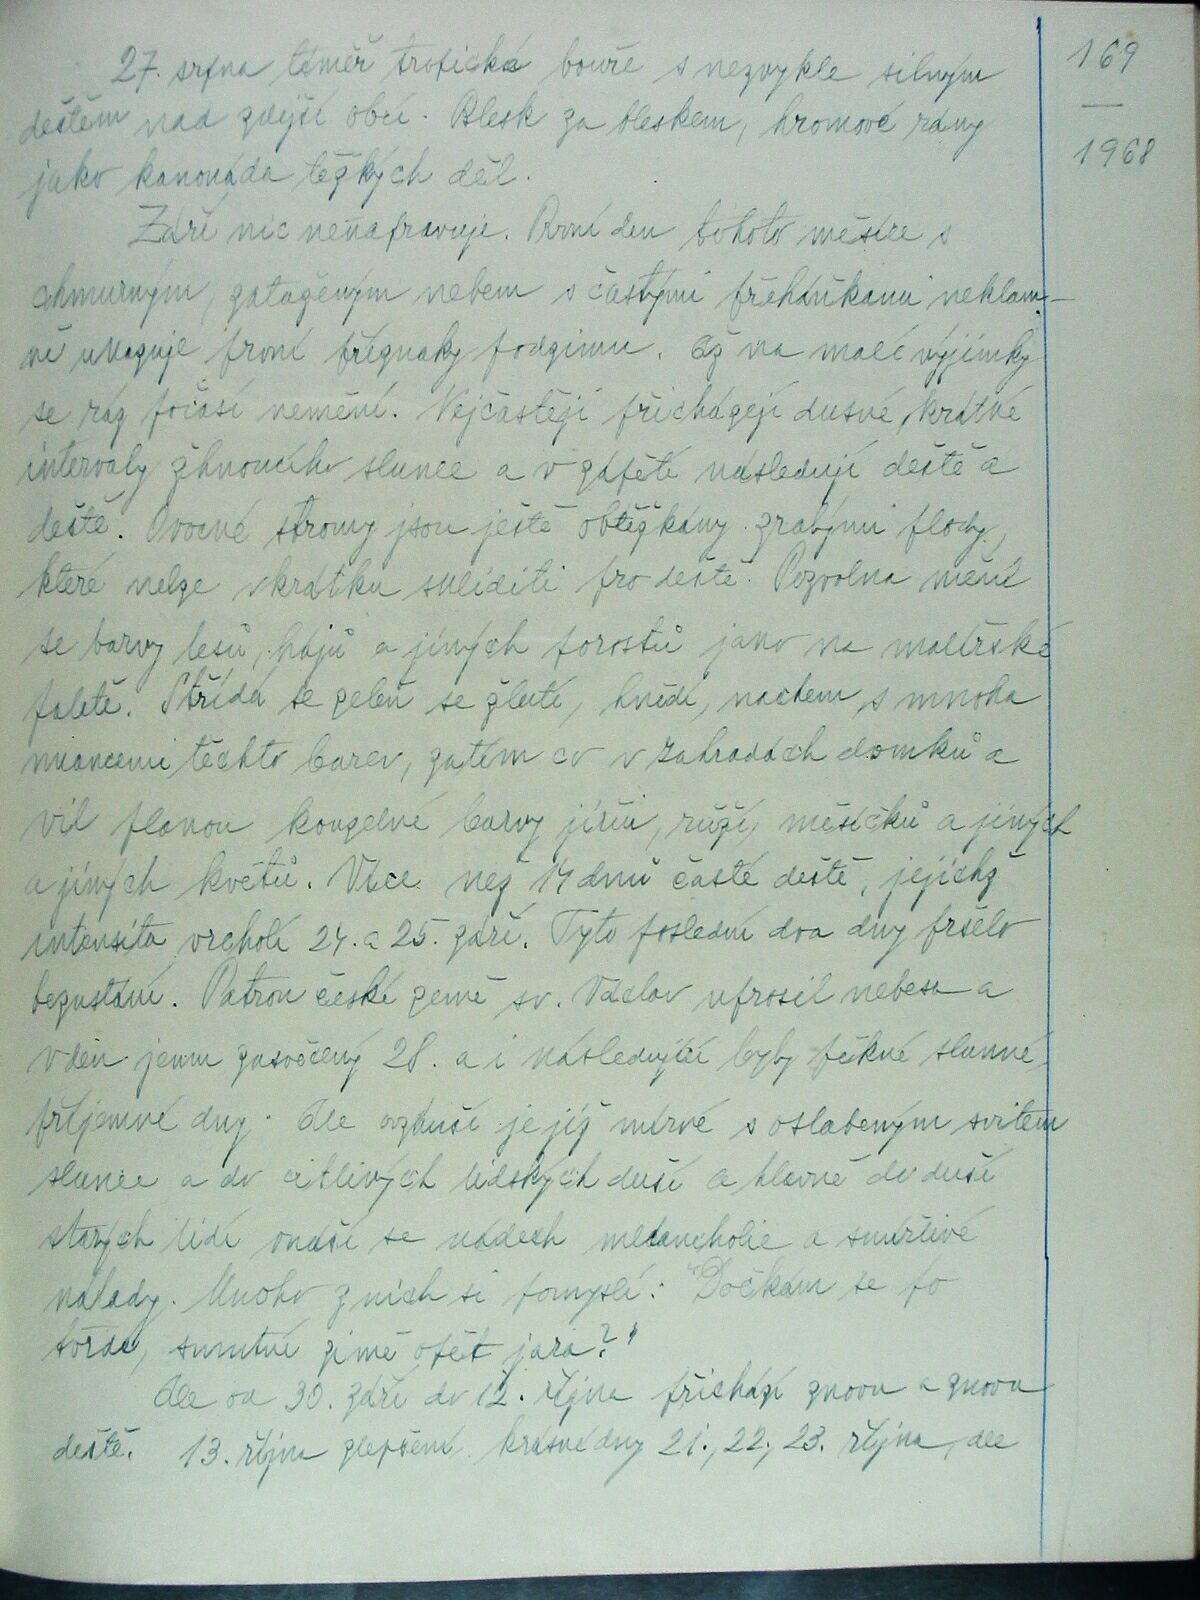 169
1968
27. srpna téměř tropická bouře s nezvykle silným
deštěm nad zdejší obcí. Blesk za bleskem, hromové rány
jako kanonáda těžkých děl.
Září nic nenapravuje. První den tohoto měsíce s
chmurným, zataženým nebem s častými přeháňkami neklam-
ně ukazuje první příznaky podzimu. Až na malé výjimky
se ráz počasí nemění. Nejčastěji přicházejí dusné, krátké
intervaly žhnoucího slunce a v zápětí následují deště a
deště. Ovocné stromy jsou ještě obtěžkány zralými plody,
které nelze vkrátku skliditi pro deště. Pozvolna mění
se barvy lesů, hájů a jiných porostů jako na malířské
paletě. Střídá se zeleň se žlutí, hnědí, nachem, s mnoha
niancemi těchto barev, zatím co v zahradách domků a
vil planou kouzelné barvy jiřin, růží, měsíčků a jiných
a jiných květů. Více než 14 dnů časté deště, jejichž
intensita vrcholí 24. a 25. září. Tyto poslední dva dny pršelo
bezustání. Patron české země sv. Václav uprosil nebesa a
v den jemu zasvěcený 28. a i následující byly pěkné slunné,
příjemné dny. Ale ovzduší je již mírné s oslabeným svitem
slunce a do citlivých lidských duší a hlavně do duší
starých lidí vnáší se nádech melancholie a smířlivé
nálady. Mnoho z nich si pomyslí: "Dočkám se po
tvrdé, smutné zimě opět jara?"
Ale od 30. září do 12. října přichází znovu a znovu
deště. 13. října zlepšení, krásné dny 21., 22., 23. října, ale